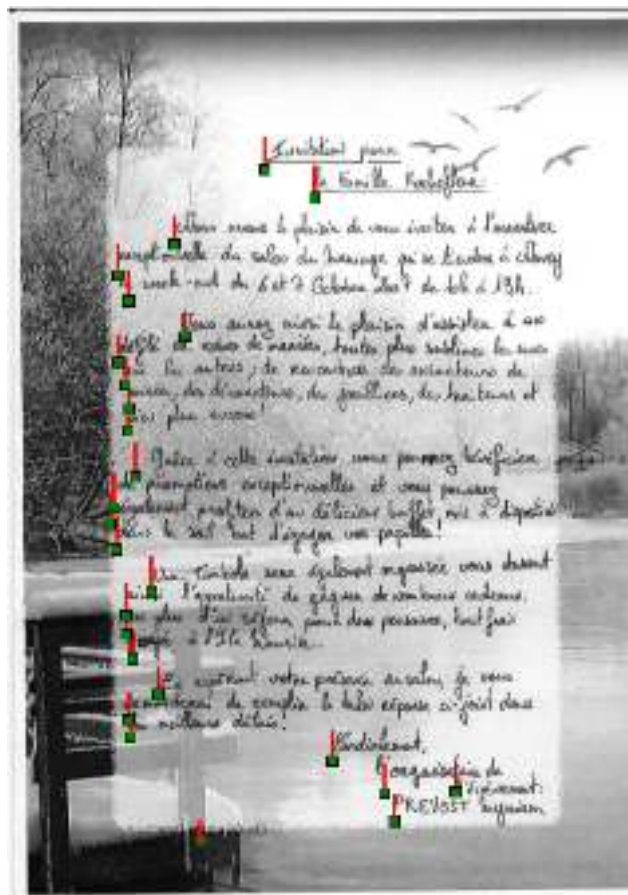 Invitation pour
la famille Rochefleur
Nous avons le plaisir de vous inviter à l'ouverture
exceptionnelle du salon du mariage qui se tiendra à
week-end du 6 et 7 Octobre 2007 de 10h à 19h.
Vous aurez aussi le plaisir d'assister à un
défilé de robes de mariées, toutes plus sublimes les unes
que les autres, de rencontrer des
des décorateurs, des joailliers, des traiteurs et
bien plus encore!
Grâce à cette invitation, vous pourrez bénéficier
de promotions exceptionnelles et vous pourrez
également profiter d'un délicieux buffet, mis à disposition
dans le seul but d'égayer vos papilles!
Une tombola sera également organisée vous donnant
ainsi l'opportunité de gagner de nombreux cadeaux
en plus d'un séjour, pour deux personnes, tout frais
à l'Ile Maurice.
votre présence au salon, je vous
de remplir le talon réponse ci-joint dans
les meilleurs délais!
Cordialement,
l'organisatrice de
l'événement:
PREVOST